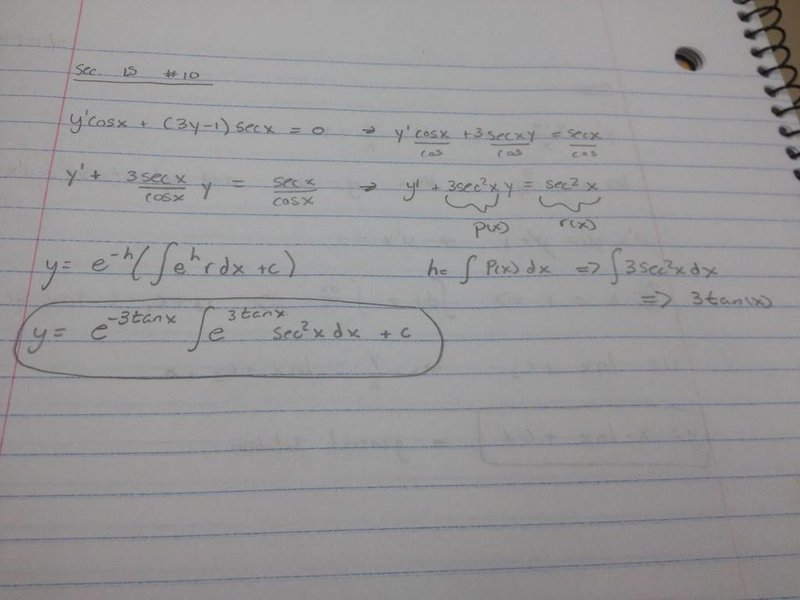 Sec. 1.5 #10
y'cosx + (3y-1) secx = 0 → y' cosx/cos + 3secxy/cos = secx/cos
y' + 3secx/cosx y = secx/cosx → y' + 3sec²x y = sec²x
p(x) r(x)
y = e^-h (∫e^h r dx + c) h = ∫ P(x) dx => ∫3sec²x dx
=> 3tan(x)
y = e^-3tanx ∫e^3tanx sec²x dx + c